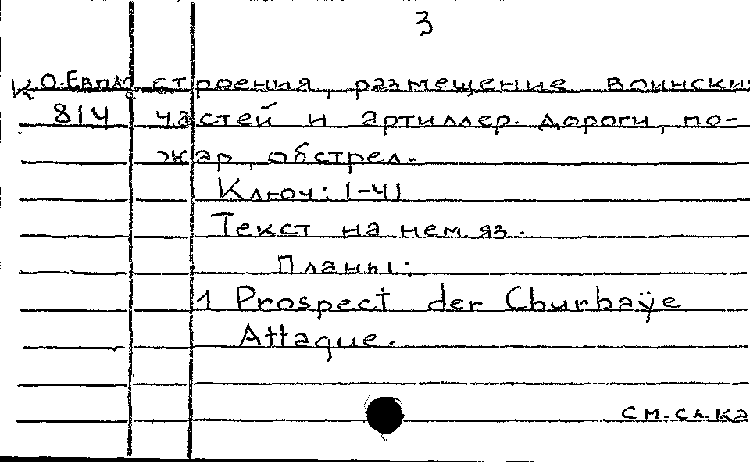 3
К О.Евпло строения, размещение воински
8/4 частей и артиллер. дороги, по-
жар, обстрел.
Ключ: 1-41
Текст на нем. яз.
Планы:
1 Prospect der Churbaÿe
Attaque.
см. сл. ка